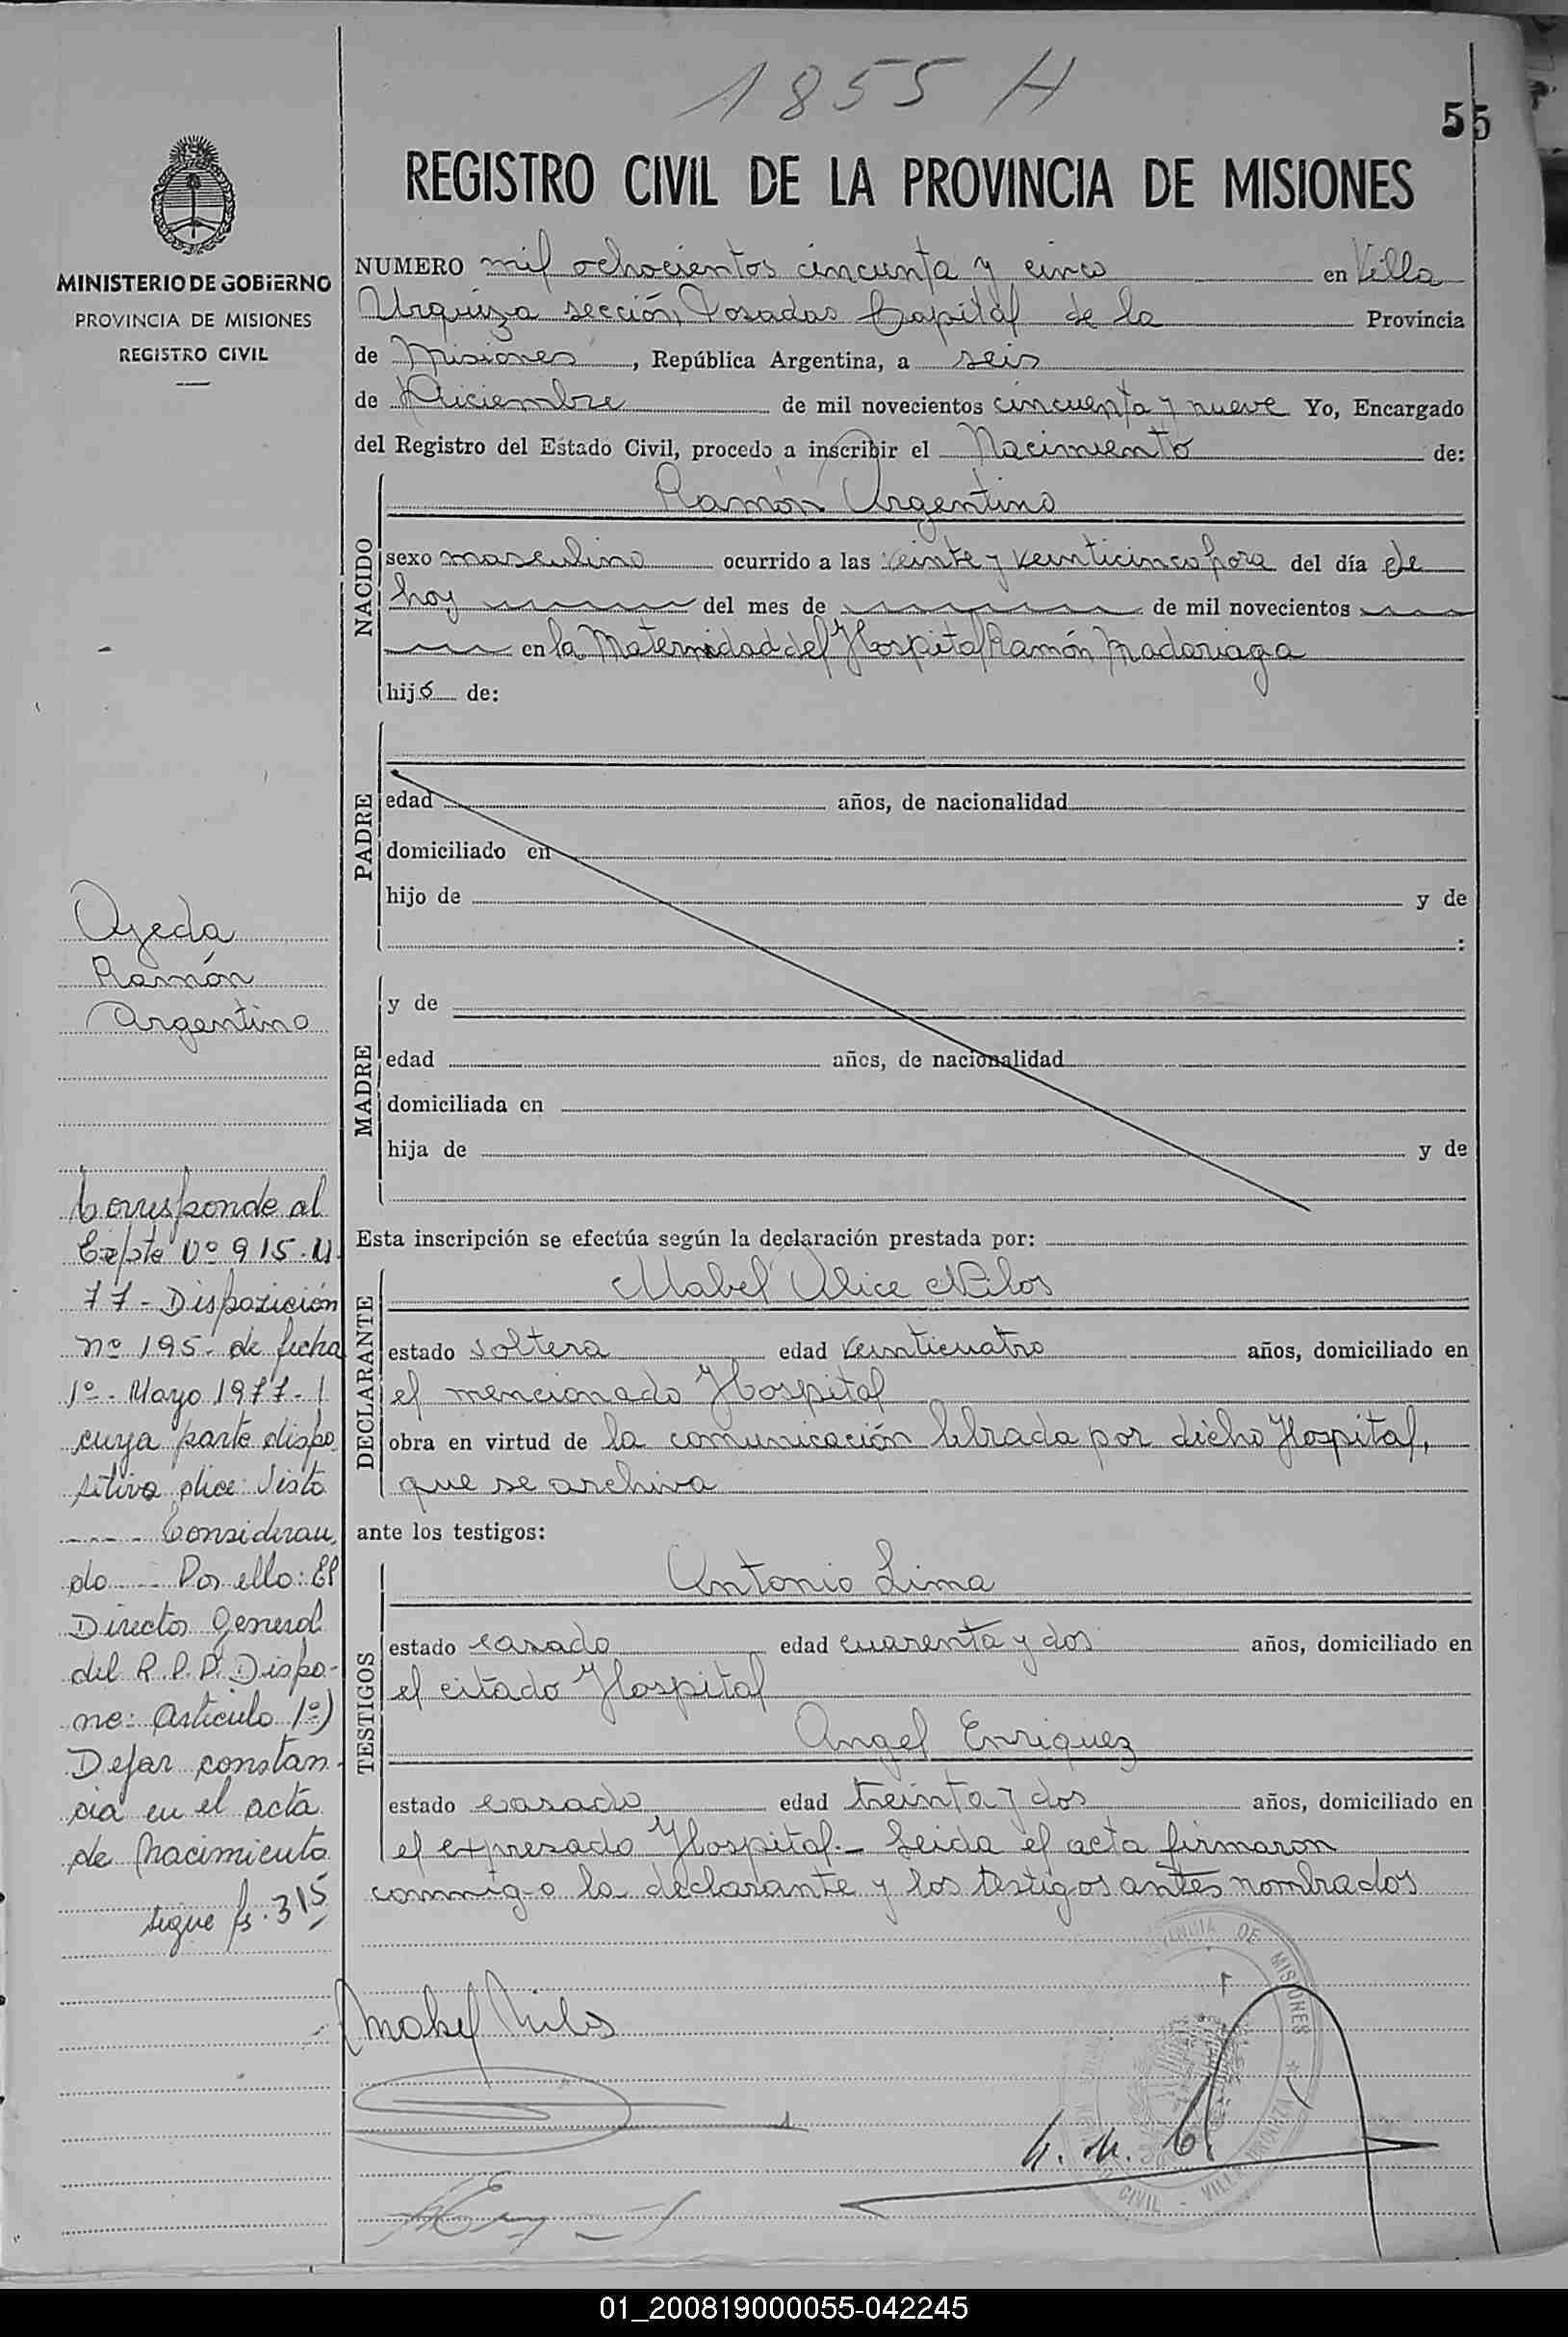 1855 H
55
REGISTRO CIVIL DE LA PROVINCIA DE MISIONES
MINISTERIO DE GOBIERNO
PROVINCIA DE MISIONES
REGISTRO CIVIL
NUMERO mil ochocientos cincunta y cinco en Villa
Urquiza sección, Posadas Capital de la Provincia
de Misiones, República Argentina, a seis
de Diciembre de mil novecientos cincuenta y nueve Yo, Encargado
del Registro del Estado Civil, procedo a inscribir el Nacimiento de:
NACIDO
Ramón Argentino
sexo masculino ocurrido a las veinte y veinticinco hora del día de
hoy del mes de de mil novecientos
en la Maternidad del Hospital Ramón Madariaga
hijo de:
PADRE
edad años, de nacionalidad
domiciliado en
hijo de y de
:
MADRE
y de
edad años, de nacionalidad
domiciliada en
hija de y de
Esta inscripción se efectúa según la declaración prestada por:
DECLARANTE
Mabel Alice Nilos
estado soltera edad veinticuatro años, domiciliado en
el mencionado Hospital
obra en virtud de la comunicación librada por dicho Hospital,
que se archiva
ante los testigos:
TESTIGOS
Antonio Lima
estado casado edad cuarenta y dos años, domiciliado en
el citado Hospital
Angel Enriquez
estado casado edad treinta y dos años, domiciliado en
el expresado Hospital.- Leida el acta firmaron
conmigo la declarante y los testigos antes nombrados
Ojeda
Ramón
Argentino
Corresponde al
Expte Nº 915.U
77 - Disposición
nº 195. de fecha
1º. Mayo 1977-
cuya parte dispo
sitiva dice: Visto
---- Consideran
do --- Por ello: El
Director General
del R.P.P. Dispo-
ne: Artículo 1º)
Dejar constan
cia en el acta
de Nacimiento
sigue fs. 315
Mabel Nilos
PROVINCIA DE MISIONES
CIVIL - VILLA
01_200819000055-042245